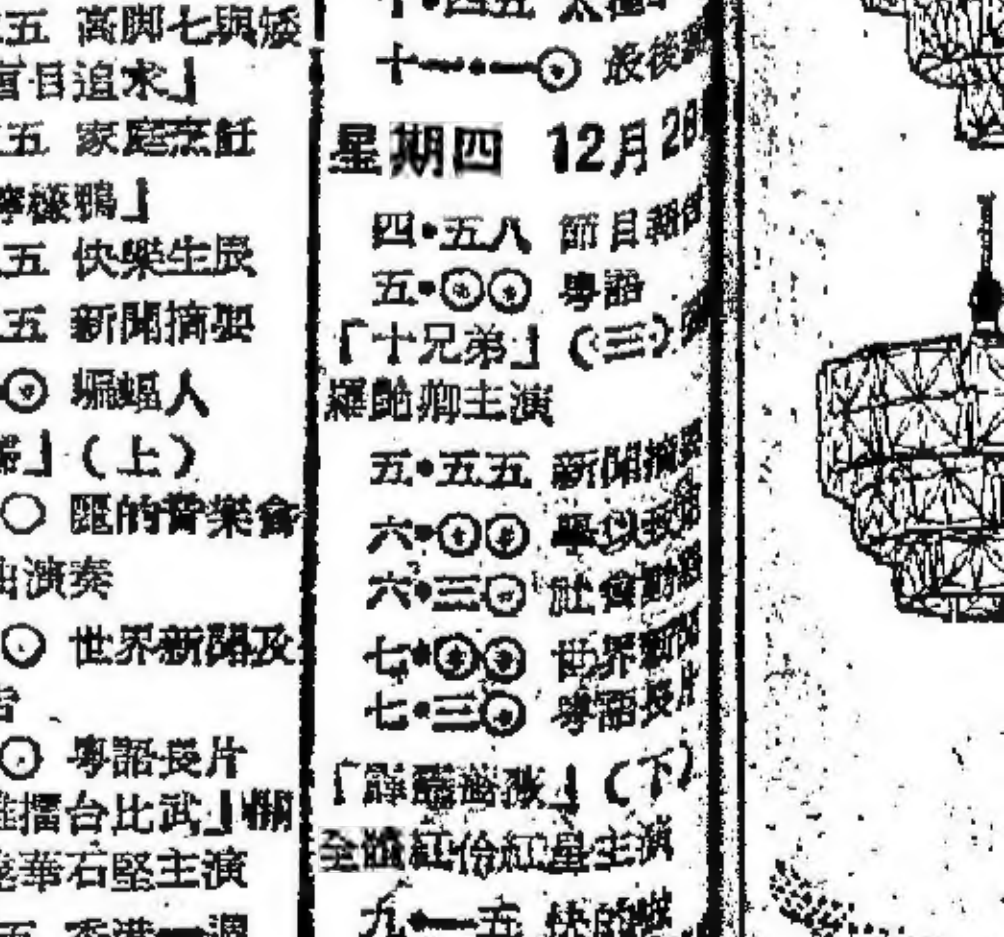 五 高脚七與矮
盲目追求」
五 家庭烹飪
檸檬鴨」
五 快樂生辰
五 新聞摘要
⊙ 蝙蝠人
」(上)
○ 的音樂會
演奏
⊙ 世界新聞及
⊙ 粵語長片
擂台比武」
華石堅主演
五 香港一週
十•四五 太
十一•一⊙ 最後
星期四 12月28
四•五八 節目
五•⊙⊙ 粵語
「十兄弟」(三)
羅艷卿主演
五•五五 新聞摘要
六•⊙⊙
六•三⊙ 社會動態
七•⊙⊙ 世界新聞
七•三⊙ 粵語長片
「霹靂」(下)
全 紅伶紅星主演
九•一五 快的